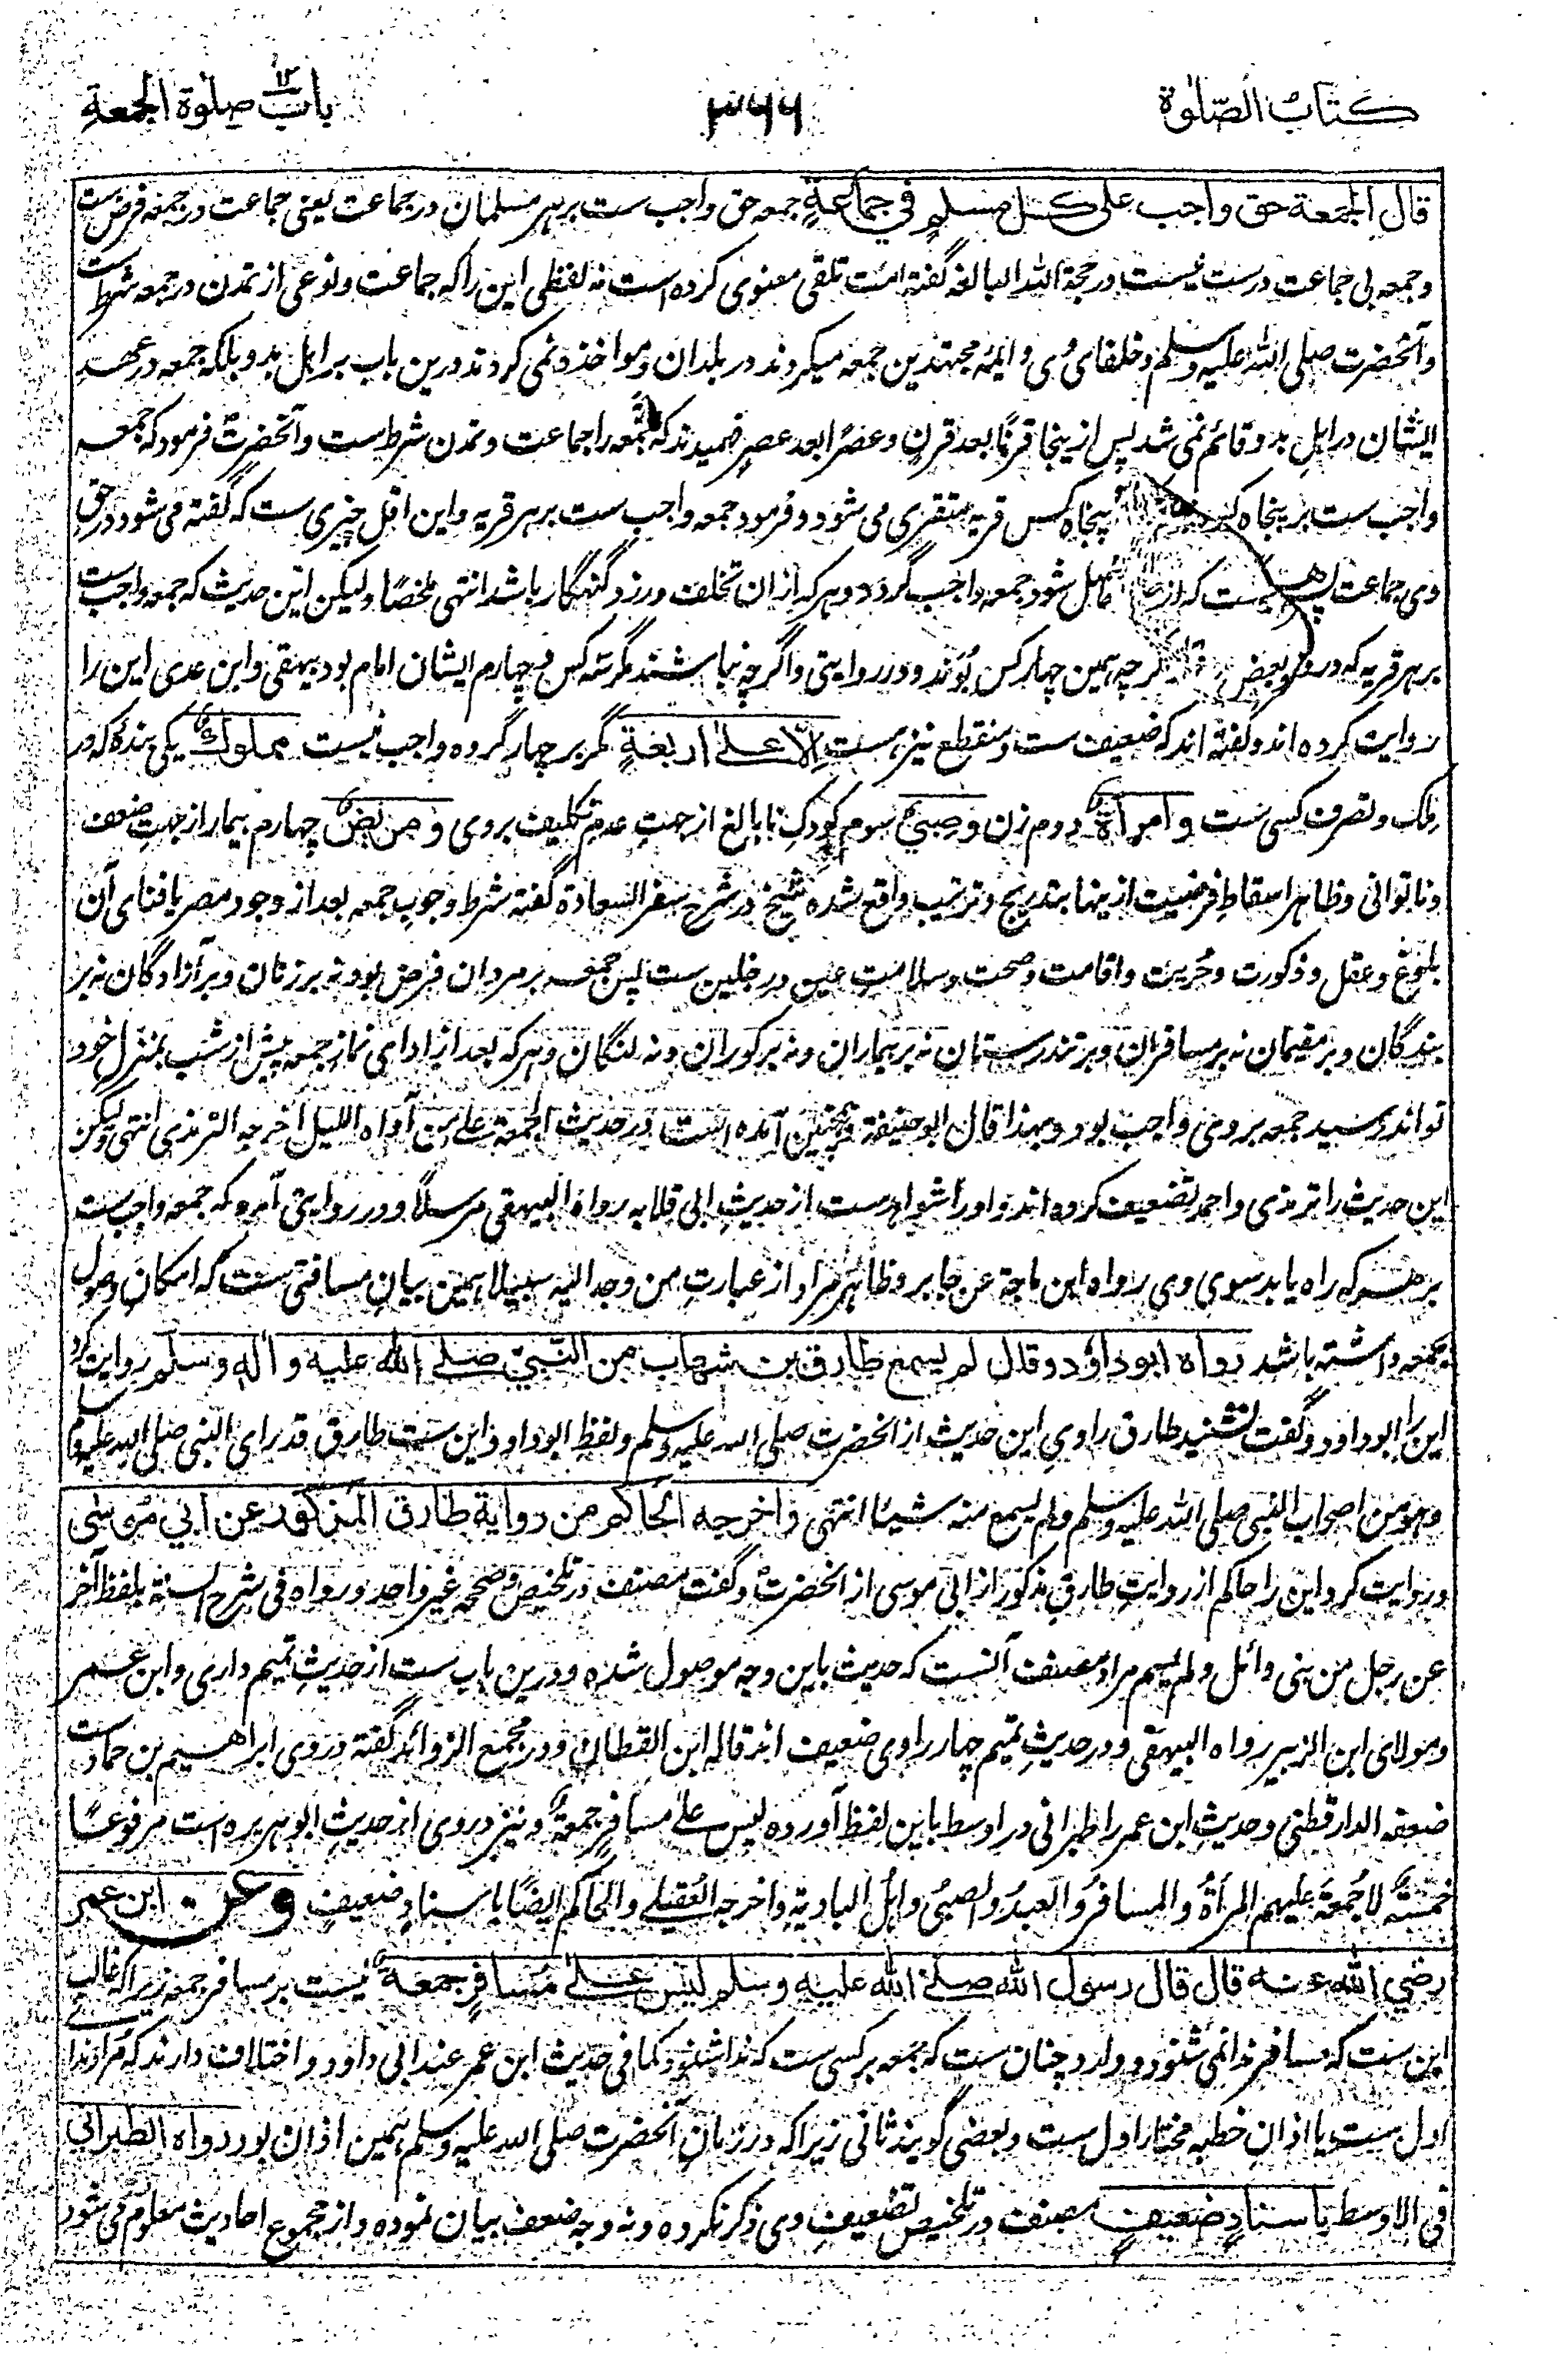 كتاب الصّلوة
۳۶۶
باب ۱۲ صلوة الجمعة
قال الجمعة حق واجب على كل مسلم في جماعةٍ جمعه حق واجب ست بر هر مسلمان در جماعت یعنی جماعت در جمعه فرض ست
و جمعه بی جماعت درست نیست در حجة الله البالغه گفته امت تلقی معنوی کرده است نه لفظی این را که جماعت و نوعی از تمدن در جمعه شرط ست
و آنحضرت صلی الله علیه وسلم و خلفای وی و ایمهٔ مجتهدین جمعه میکردند در بلدان و مواخذه نمی کردند درین باب بر اهل بدو بلکه جمعه در عهد
ایشان در اهلِ بدو قائم نمی شد پس ازینجا قرنًا بعد قرنٍ و عصرًا بعد عصرٍ فهمیدند که جمعه را جماعت و تمدن شرط ست و آنحضرت فرمود که جمعه
واجب ست بر پنجاه کس پنجاه کس قریه متقرری می شود و فرمود جمعه واجب ست بر هر قریه و این اقل چیزی ست که گفته می شود در حق
وی جماعت ست که از شود جمعه واجب گردد و هر که ازان تخلف ورزد گنهگار باشد انتهی ملخصًا ولیکن این حدیث که جمعه واجب ست
بر هر قریه که در وی اگرچه همین چهار کس بُوَند و در روایتی و اگرچه نباشند مگر سه کس و چهارم ایشان امام بود بیهقی و ابن عدی این را
روایت کرده اند و گفته اند که ضعیف ست و منقطع نیز هست إلّا على أربعةٍ مگر بر چهار گروه واجب نیست مملوكٌ یکی بنده که در
ملک و تصرف کسی ست و امرأةٌ دوم زن و صبيٌ سوم کودکِ نابالغ از جهتِ عدمِ تکلیف بر وی و مريضٌ چهارم بیمار از جهتِ ضعف
و ناتوانی و ظاهر اسقاطِ فرضیت ازینها بتدریج و ترتیب واقع شده شیخ در شرح سفر السعادة گفته شرطِ وجوبِ جمعه بعد از وجود مصر یا فنای آن
بلوغ و عقل و ذکورت و حُریت و اقامت و صحت و سلامتِ عین و رجلین ست پس جمعه بر مردان فرض بود نه بر زنان و بر آزادگان نه بر
بندگان و بر مقیمان نه بر مسافران و بر تندرستان نه بر بیماران و نه بر کوران و نه لنگان و هر که بعد از ادای نماز جمعه پیش از شب بمنزلِ خود
تواند رسید جمعه بر وی واجب بود و بهذا قال ابو حنیفة و همچنین آمده است در حدیث الجمعة علی من آواه اللیل أخرجه الترمذی انتهی ولیکن
این حدیث را ترمذی و احمد تضعیف کرده اند و او را شواهد ست از حدیثِ ابی قلابه رواه البیهقی مرسلًا و در روایتی آمده که جمعه واجب ست
بر هر که راه یابد بسوی وی رواه ابن ماجة عن جابر و ظاهر مراد از عبارتِ من وجد الیه سبیلا همین بیانِ مسافتی ست که امکانِ وصول
بجمعه داشته باشد رواه ابو داؤد وقال لم يسمع طارق بن شهاب من النّبيّ صلى الله عليه و آله وسلم روایت کرد
این را ابو داود و گفت نشنید طارق راویِ این حدیث از آنحضرت صلی الله علیه وسلم و لفظِ ابو داود این ست طارق قد رای النبی صلی الله علیه وسلم
و هو من اصحاب النبی صلی الله علیه وسلم و لم یسمع منه شیئًا انتهی و اخرجه الحاكم من رواية طارق المذكور عن ابي موسى
و روایت کرد این را حاکم از روایتِ طارقِ مذکور از ابی موسی از آنحضرت و گفت مصنف در تلخیص و صححه غیر واحد و رواه فی شرح السنة بلفظ آخر
عن رجل من بنی وائل و لم یسم مراد مصنف آنست که حدیث باین وجه موصول شده و درین باب ست از حدیثِ تمیم داری و ابن عمر
و مولای ابن الزبیر رواه البیهقی و در حدیثِ تمیم چهار راوی ضعیف اند قاله ابن القطان و در مجمع الزوائد گفته در وی ابراهیم بن حماد ست
ضعفه الدارقطنی و حدیثِ ابن عمر را طبرانی در اوسط باین لفظ آورده لیس علی مسافرٍ جمعةٌ و نیز در وی از حدیثِ ابو هریره است مرفوعًا
خمسةٌ لا جُمعةَ علیهم المرأةُ والمسافرُ والعبدُ والصبیُ واهلُ البادیةِ واخرجه العُقیلی والحاکم ایضًا باسنادٍ ضعیفٍ وعن ابن عمر
رضي الله عنه قال قال رسول الله صلى الله عليه وسلم ليس على مسافرٍ جمعةٌ نیست بر مسافر جمعه زیرا که غالب
این ست که مسافر ندا نمی شنود و وارد چنان ست که جمعه بر کسی ست که ندا شنود کما فی حدیث ابن عمر عند ابی داود و اختلاف دارند که مراد ندا
اول ست یا اذانِ خطبه مختار اول ست و بعضی گویند ثانی زیرا که در زمانِ آنحضرت صلی الله علیه وسلم همین اذان بود رواه الطبراني
في الاوسط باسنادٍ ضعيفٍ مصنف در تلخیص تضعیفِ وی ذکر نکرده و نه وجهِ ضعف بیان نموده و از مجموع احادیث معلوم می شود